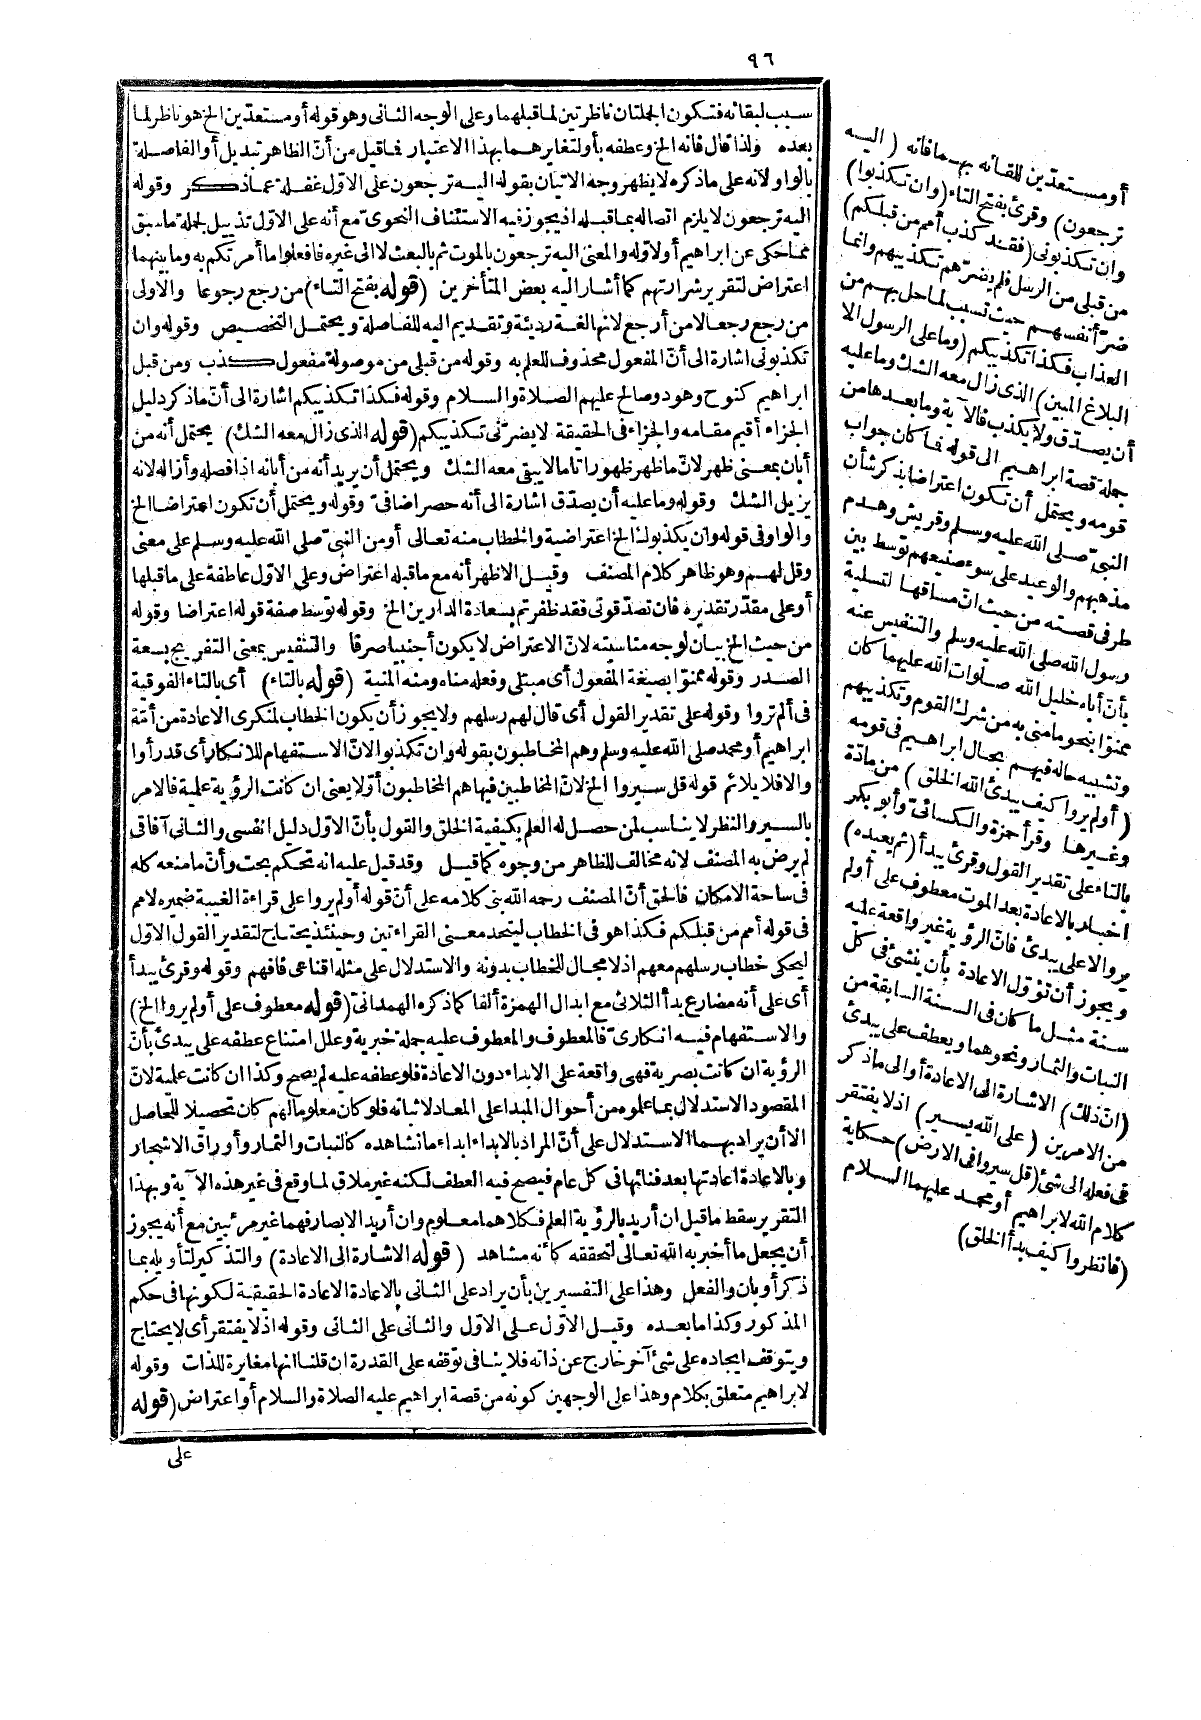 ٩٦
سبب لبقائه فتكون الجملتان ناظرتين لما قبلهما وعلى الوجه الثانى وهو قوله أو مستعدّين الخ هو ناظر لما
بعده ولذا قال فانه الخ وعطفه بأو لتغايرهما بهذا الاعتبار فما قيل من أنّ الظاهر تبديل أو الفاصلة
بالواو لانه على ما ذكره لا يظهر وجه الاتيان بقوله اليه ترجعون على الاوّل غفلة عما ذكر وقوله
اليه ترجعون لا يلزم اتصاله بما قبله اذ يجوز فيه الاستئناف النحوى مع أنه على الاول تذييل لجملة ما سبق
مما حكى عن ابراهيم أوّلا وله والمعنى اليه ترجعون بالموت ثم بالبعث لا الى غيره فافعلوا ما أمرتكم به وما بينهما
اعتراض لتقرير شرارتهم كما أشار اليه بعض المتأخرين (قوله بفتح التاء) من رجع رجوعا والاولى
من رجع رجعا لا من أرجع لانها لغة رديئة وتقديم اليه للفاصلة ويحتمل التخصيص وقوله وان
تكذبونى اشارة الى أنّ المفعول محذوف للعلم به وقوله من قبلى من موصولة مفعول كذب ومن قبل
ابراهيم كنوح وهود وصالح عليهم الصلاة والسلام وقوله فكذا تكذيبكم اشارة الى أنّ ما ذكر دليل
الجزاء أقيم مقامه والجزاء فى الحقيقة لا يضرّنى تكذيبكم (قوله الذى زال معه الشك) يحتمل أنه من
أبان بمعنى ظهر لانّ ما ظهر ظهورا تاما لا يبقى معه الشك ويحتمل أن يريد أنه من أبانه اذا فصله وأزاله لانه
يزيل الشك وقوله وما عليه أن يصدّق اشارة الى أنه حصر اضافىّ وقوله ويحتمل أن تكون اعتراضا الخ
والواو فى قوله وان يكذبوك الخ اعتراضية والخطاب منه تعالى أو من النبىّ صلى الله عليه وسلم على معنى
وقل لهم وهو ظاهر كلام المصنف وقيل الاظهر أنه مع ما قبله اعتراض وعلى الاوّل عاطفة على ما قبلها
أو على مقدّر تقديره فان تصدّقونى فقد ظفرتم بسعادة الدارين الخ وقوله توسط صفة قوله اعتراضا وقوله
من حيث الخ بيان لوجه مناسبته لانّ الاعتراض لا يكون أجنبيا صرفا والتنفيس بمعنى التفريج بسعة
الصدر وقوله ممنوّا بصيغة المفعول أى مبتلى وفعله مناه ومنه المنية (قوله بالتاء) أى بالتاء الفوقية
فى ألم تروا وقوله على تقدير القول أى قال لهم رسلهم ولا يجوز أن يكون الخطاب لمنكرى الاعادة من أمّة
ابراهيم أو محمد صلى الله عليه وسلم وهم المخاطبون بقوله وان تكذبوا لانّ الاستفهام للانكار أى قد رأوا
والا فلا يلائم قوله قل سيروا الخ لانّ المخاطبين فيها هم المخاطبون أوّلا يعنى ان كانت الرؤية علمية فالامر
بالسير والنظر لا يناسب لمن حصل له العلم بكيفية الخلق والقول بأنّ الاوّل دليل انفسى والثانى آفاقى
لم يرض به المصنف لانه مخالف للظاهر من وجوه كما قيل وقد قيل عليه انه تحكم بحت وأنّ ما منعه كله
فى ساحة الامكان فالحق أنّ المصنف رحمه الله بنى كلامه على أن قوله أولم يروا على قراءة الغيبة ضميره لامم
فى قوله أمم من قبلكم فكذا هو فى الخطاب ليتحد معنى القراءتين وحينئذ يحتاج لتقدير القول الاول
ليحكى خطاب رسلهم معهم اذ لا مجال للخطاب بدونه والاستدلال على مثله اقناعى فافهم وقوله وقرئ يبدأ
أى على أنه مضارع بدأ الثلاثى مع ابدال الهمزة ألفا كما ذكره الهمدانى (قوله معطوف على أولم يروا الخ)
والاستفهام فيه انكارىّ فالمعطوف والمعطوف عليه جملة خبرية وعلل امتناع عطفه على يبدئ بأنّ
الرؤية ان كانت بصرية فهى واقعة على الابداء دون الاعادة فلو عطفه عليه لم يصح وكذا ان كانت علمية لانّ
المقصود الاستدلال بما علموه من أحوال المبدا على المعاد لاثباته فلو كان معلوما لهم كان تحصيلا للحاصل
الا أن يراد بهما الاستدلال على أنّ المراد بالابداء ابداء ما نشاهده كالنبات والثمار وأوراق الاشجار
وبالاعادة اعادتها بعد فنائها فى كل عام فيصح فيه العطف لكنه غير ملاق لما وقع فى غير هذه الآية وبهذا
التقرير سقط ما قيل ان أريد بالرؤية العلم فكلاهما معلوم وان أريد الابصار فهما غير مرئيين مع أنه يجوز
أن يجعل ما أخبر به الله تعالى لتحققه كأنه مشاهد (قوله الاشارة الى الاعادة) والتذكير لتأويله بما
ذكر أو بأن والفعل وهذا على التفسيرين بأن يراد على الثانى بالاعادة الاعادة الحقيقية لكونها فى حكم
المذكور وكذا ما بعده وقيل الاوّل على الاوّل والثانى على الثانى وقوله اذ لا يفتقر أى لا يحتاج
ويتوقف ايجاده على شئ آخر خارج عن ذاته فلا ينافى توقفه على القدرة ان قلنا انها مغايرة للذات وقوله
لابراهيم متعلق بكلام وهذا على الوجهين كونه من قصة ابراهيم عليه الصلاة والسلام أو اعتراض (قوله
على
أو مستعدّين للقائه بهما فانه (اليه
ترجعون) وقرئ بفتح التاء (وان تكذبوا)
وان تكذبونى (فقد كذب أمم من قبلكم)
من قبلى من الرسل فلم يضرّهم تكذيبهم وانما
ضرّ أنفسهم حيث تسبب لما حل بهم من
العذاب فكذا تكذيبكم (وما على الرسول الا
البلاغ المبين) الذى زال معه الشك وما عليه
أن يصدّق ولا يكذب فالآية وما بعدها من
جملة قصة ابراهيم الى قوله فما كان جواب
قومه ويحتمل أن تكون اعتراضا بذكر شأن
النبىّ صلى الله عليه وسلم وقريش وهدم
مذهبهم والوعيد على سوء صنيعهم توسط بين
طرفى قصته من حيث انّ مساقها لتسلية
رسول الله صلى الله عليه وسلم والتنفيس عنه
بأنّ أباه خليل الله صلوات الله عليهما كان
ممنوّا بنحو ما منى به من شرك القوم وتكذيبهم
وتشبيه حاله فيهم بحال ابراهيم فى قومه
(أولم يروا كيف يبدئ الله الخلق) من مادّة
وغيرها وقرأ حمزة والكسائىّ وأبو بكر
بالتاء على تقدير القول وقرئ يبدأ (ثم يعيده)
اخبار بالاعادة بعد الموت معطوف على أولم
يروا لا على يبدئ فانّ الرؤية غير واقعة عليه
ويجوز أن تؤوّل الاعادة بأن ينشئ فى كل
سنة مثل ما كان فى السنة السابقة من
النبات والثمار ونحوهما ويعطف على يبدئ
(انّ ذلك) الاشارة الى الاعادة أو الى ما ذكر
من الامرين (على الله يسير) اذ لا يفتقر
فى فعله الى شئ (قل سيروا فى الارض) حكاية
كلام الله لابراهيم أو محمد عليهما السلام
(فانظروا كيف بدأ الخلق)